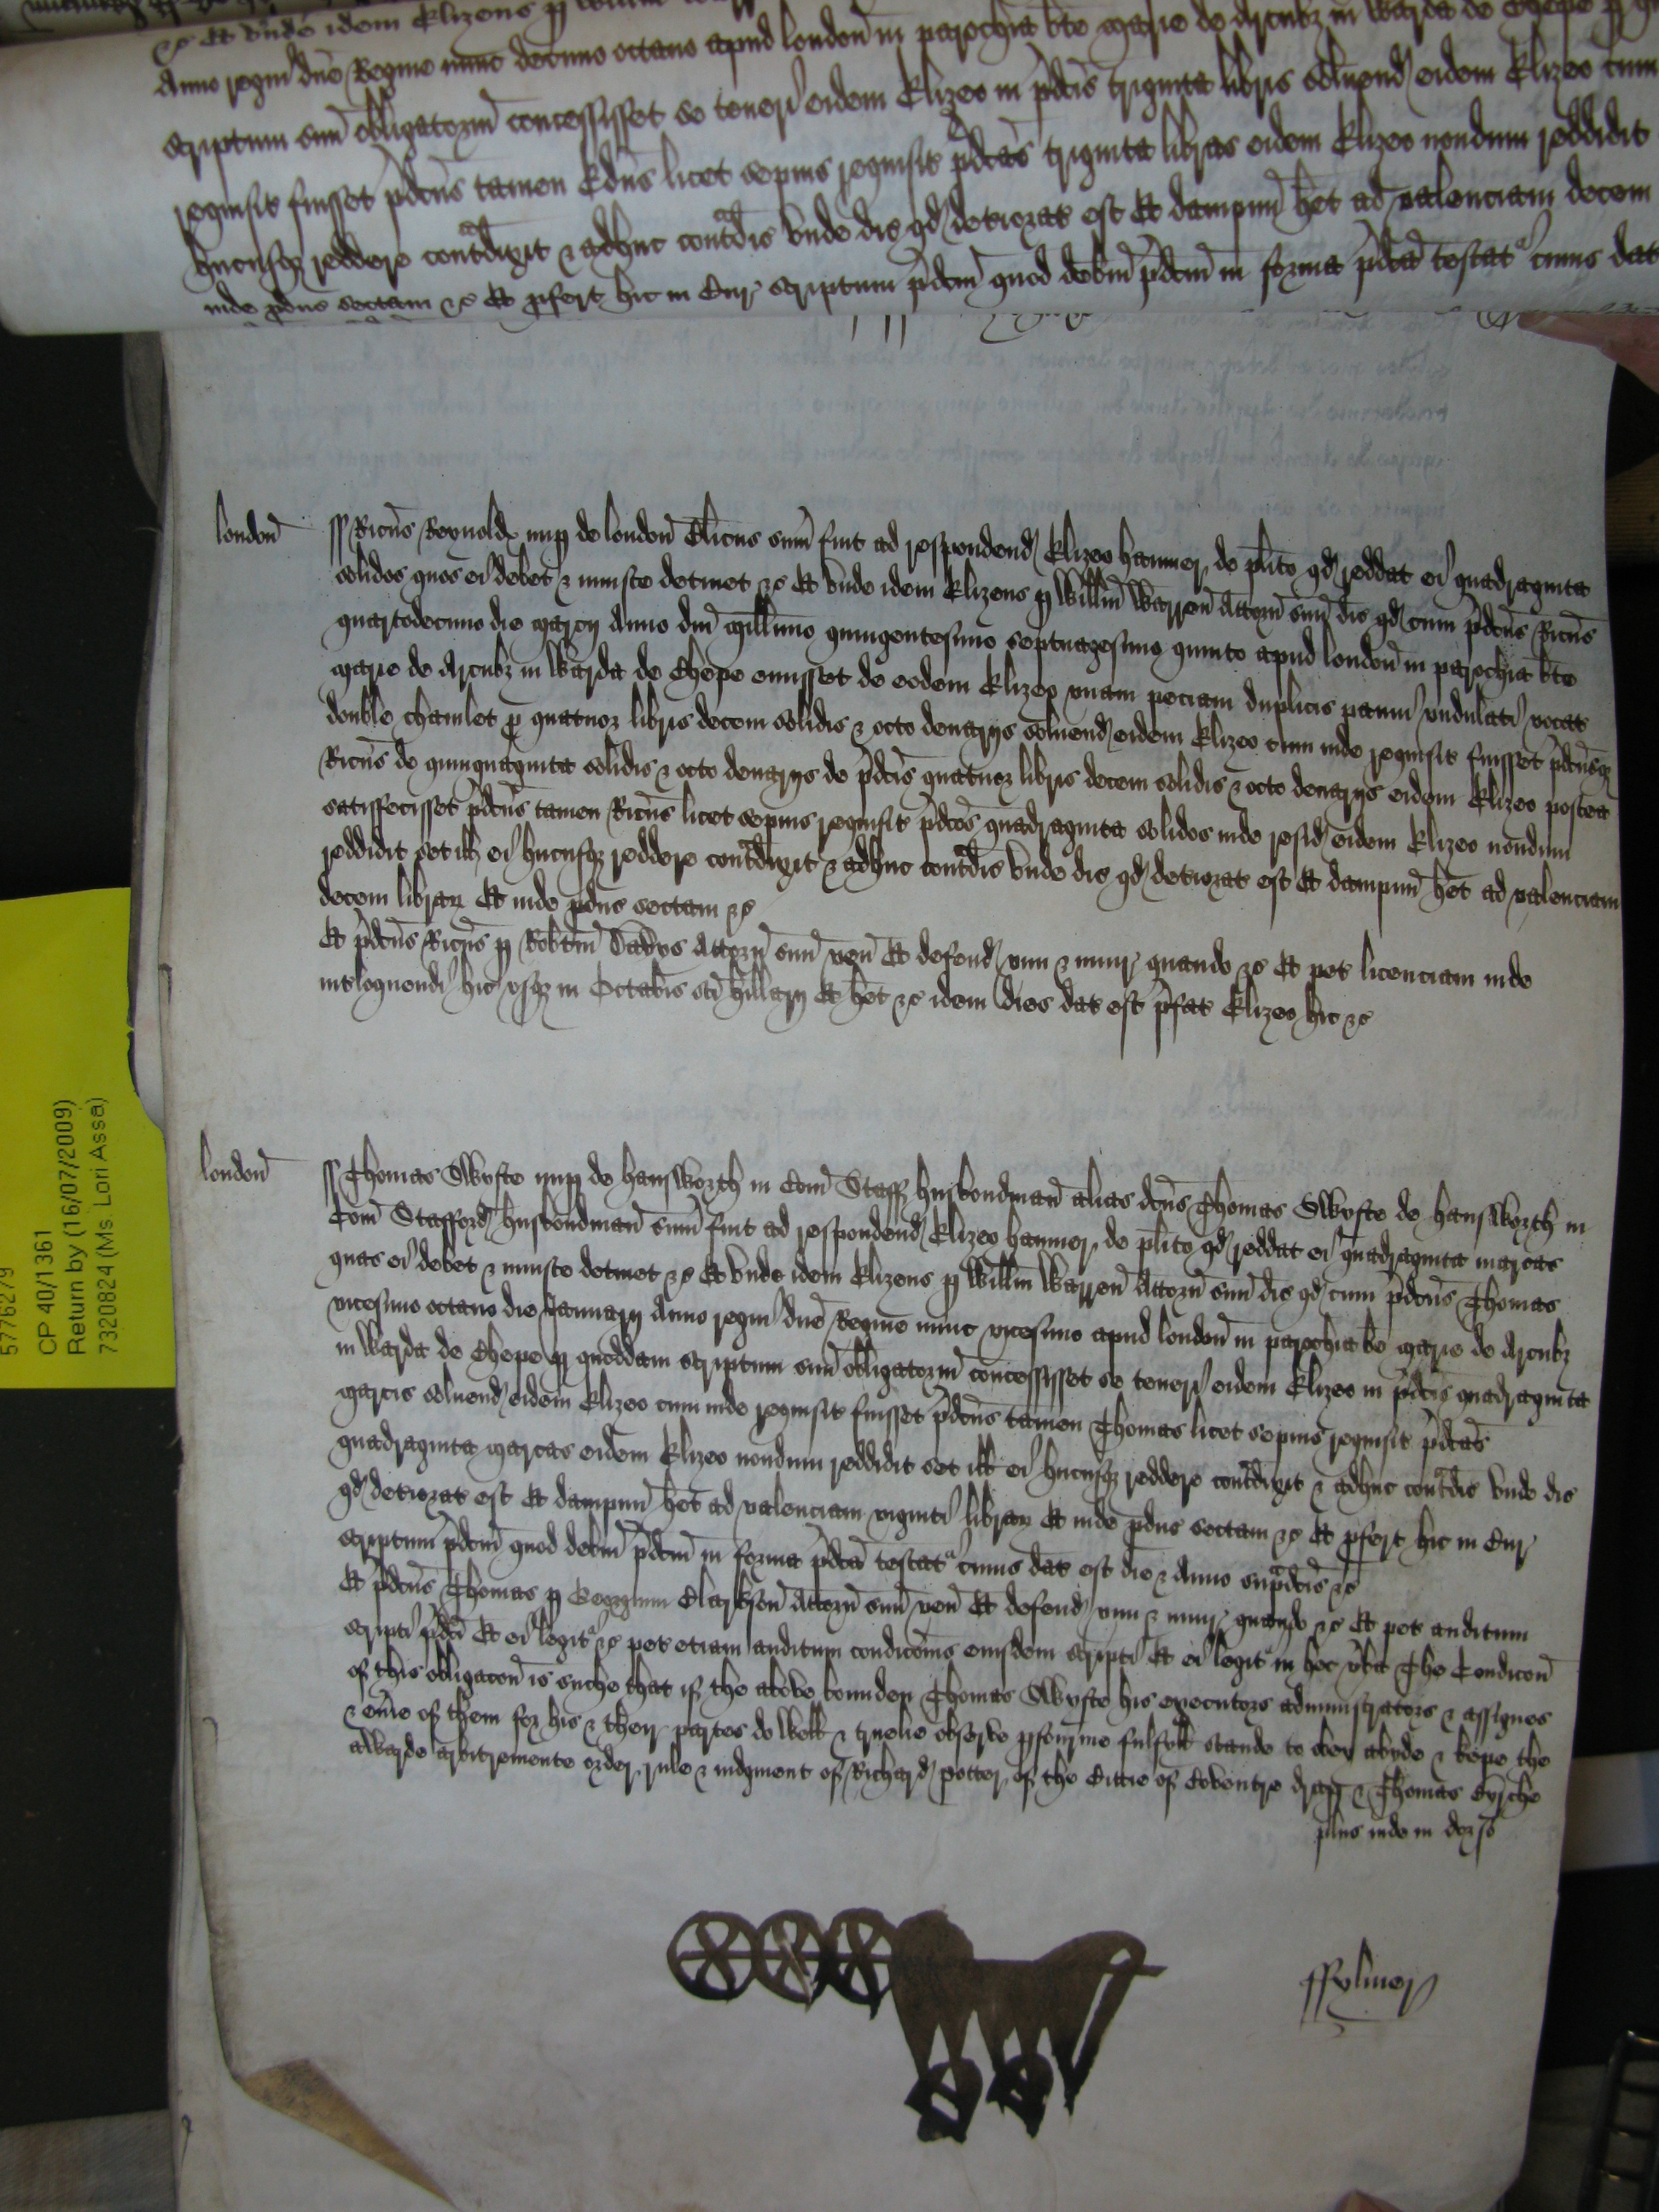 &c Et unde idem Elizeus p
Anno regni dne Regine nunc decimo octavo apud london in parochia bte Marie de Arcubz in Warda de Chepe p
scriptum suu obligatorm concessisset se teneri eidem Elizeo in pdcis triginta libris solvend eidem Elizeo cum
requisit fuisset pdcus tamen Edus licet sepius requisit pdcas triginta libras eidem Elizeo nondum reddidit
hucusqz reddere contradixit & adhuc contradic unde dic qd deteriorat est Et dampnu het ad valenciam decem
inde pduc sectam &c Et pfert hic in Cur scriptum pdcm quod debm pdcm in forma pdca testat cuius dat
london
Ricus Reynold nup de london Clicus sum fuit ad respondend Elizeo hanmer de plito qd reddat ei quadraginta
solidos quos ei debet & iniuste detinet &c Et unde idem Elizeus p Willm Warren Attorn suu dic qd cum pdcus Ricus
quartodecimo die Marcij Anno dni Millimo quingentesimo septuagesimo quinto apud london in parochia bte
Marie de Arcubz in Warda de Chepe emisset de eodem Elizeo unam peciam duplicis panni undulati vocat
double chamlet p quatuor libris decem solidis & octo denarijs solvend eidem Elizeo cum inde requisit fuisset pdcusqz
Ricus de quinquaginta solidis & octo denarijs de pdcis quatuor libris decem solidis & octo denarijs eidem Elizeo postea
satisfecisset pdcus tamen Ricus licet sepius requisit pdcos quadraginta solidos inde resid eidem Elizeo nondum
reddidit set ill ei hucusqz reddere contradixit & adhuc contradic unde dic qd deteriorat est Et dampnu het ad valenciam
decem librar Et inde pduc sectam &c
Et pdcus Ricus p Robtm Davys Attorn suu ven Et defend vim & iniur quando &c Et pet licenciam inde
intloquendi hic usqz in Octabis sci hillarij Et het &c idem dies dat est pfat Elizeo hic &c
london
Thomas Swyfte nup de hansworth in Com Staff husbondman alias dcus Thomas Swyfte de hansworth in
Com Stafford husbondman sum fuit ad respondend Elizeo hanmer de plito qd reddat ei quadraginta marcas
quas ei debet & iniuste detinet &c Et unde idem Elizeus p Willm Warren Attorn suu dic qd cum pdcus Thomas
vicesimo octavo die Januarij Anno regni dne Regine nunc vicesimo apud london in parochia be Marie de Arcubz
in Warda de Chepe p quoddam scriptum suu obligatorm concessisset se teneri eidem Elizeo in pdcis quadraginta
marcis solvend eidem Elizeo cum inde requisit fuisset pdcus tamen Thomas licet sepius requisit pdcas
quadraginta marcas eidem Elizeo nondum reddidit set ill ei hucusqz reddere contradixit & adhuc contradic unde dic
qd deteriorat est Et dampnu het ad valenciam viginti librar Et inde pduc sectam &c Et pfert hic in Cur
scriptum pdcm quod debm pdcm in forma pdca testat cuius dat est die & Anno supdcis &c
Et pdcus Thomas p Georgium Clarkson Attorn suu ven Et defend vim & iniur quando &c Et pet auditum
scripti pdci Et ei legit &c pet etiam auditum condicois eiusdem scripti Et ei legit in hec vba The Condicon
of this obligacon is suche that if the above bounden Thomas Swyfte his executors administrators & assignes
& evie of them for his & their partes do well & truelie observe pfourme fulfyll stande to obey abyde & kepe the
awarde arbitremente order rule & iudgment of Richard Potter of the Cittie of Coventre drap & Thomas Cyrche
plus inde in dorso
ffylmer
5776279
CP 40/1361
Return by (16/07/2009)
7320824 (Ms. Lori Assa)